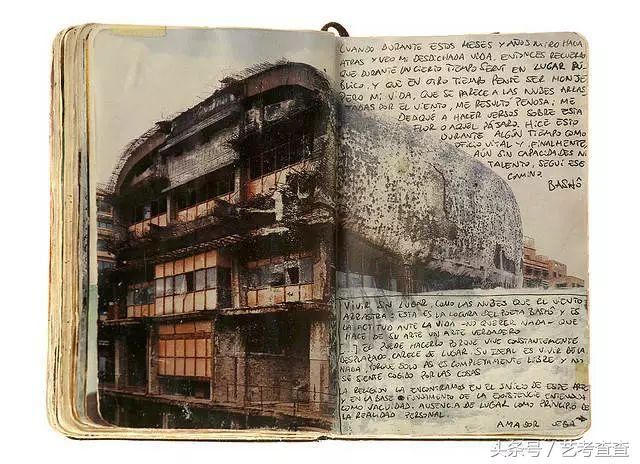 CUANDO DURANTE ESTOS MESES Y AÑOS MIRO HACIA
ATRAS Y VEO MI DESDICHADA VIDA, ENTONCES RECUERDO
QUE DURANTE UN CIERTO TIEMPO SERVÍ EN LUGAR PÚ-
BLICO, Y QUE EN OTRO TIEMPO PENSÉ SER MONJE
PERO MI VIDA, QUE SE PARECE A LAS NUBES ARRAS
TRADAS POR EL VIENTO, ME RESULTÓ PENOSA; ME
DEDIQUÉ A HACER VERSOS SOBRE ESTA
FLOR O AQUEL PÁJARO. HICE ESTO
DURANTE ALGÚN TIEMPO COMO
OFICIO VITAL Y, FINALMENTE,
AÚN SIN CAPACIDADES NI
TALENTO, SEGUÍ ESE
CAMINO.
BASHÔ
VIVIR SIN LUGAR, COMO LAS NUBES QUE EL VIENTO
ARRASTRA: ESTA ES LA LOCURA DEL POETA BASHÔ Y ES
LA ACTITUD ANTE LA VIDA -NO QUERER NADA- QUE
HACE DE SU ARTE UN ARTE VERDADERO
EL PUEDE HACERLO PORQUE VIVE CONSTANTEMENTE
DESPLAZADO, CARECE DE LUGAR. SU IDEAL ES VIVIR DE LA
NADA PORQUE SOLO ASÍ ES COMPLETAMENTE LIBRE Y NO
SE SIENTE COGIDO POR LAS COSAS
LA RELIGIÓN LA ENCONTRAMOS EN EL INICIO DE ESTE ARTE
Y EN LA BASE O FUNDAMENTO DE LA EXISTENCIA ENTENDIDA
COMO VACUIDAD. AUSENCIA DE LUGAR COMO PRINCIPIO DE
LA REALIDAD PERSONAL.
AMADOR VEGA
头条号 / 艺考查查